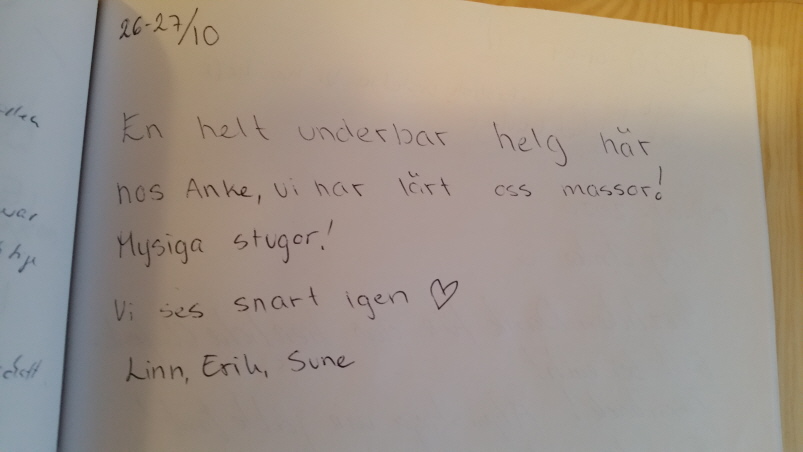 26-27/10
En helt underbar helg här
hos Anke, vi har lärt oss massor!
Mysiga stugor!
Vi ses snart igen ♡
Linn, Erik, Sune